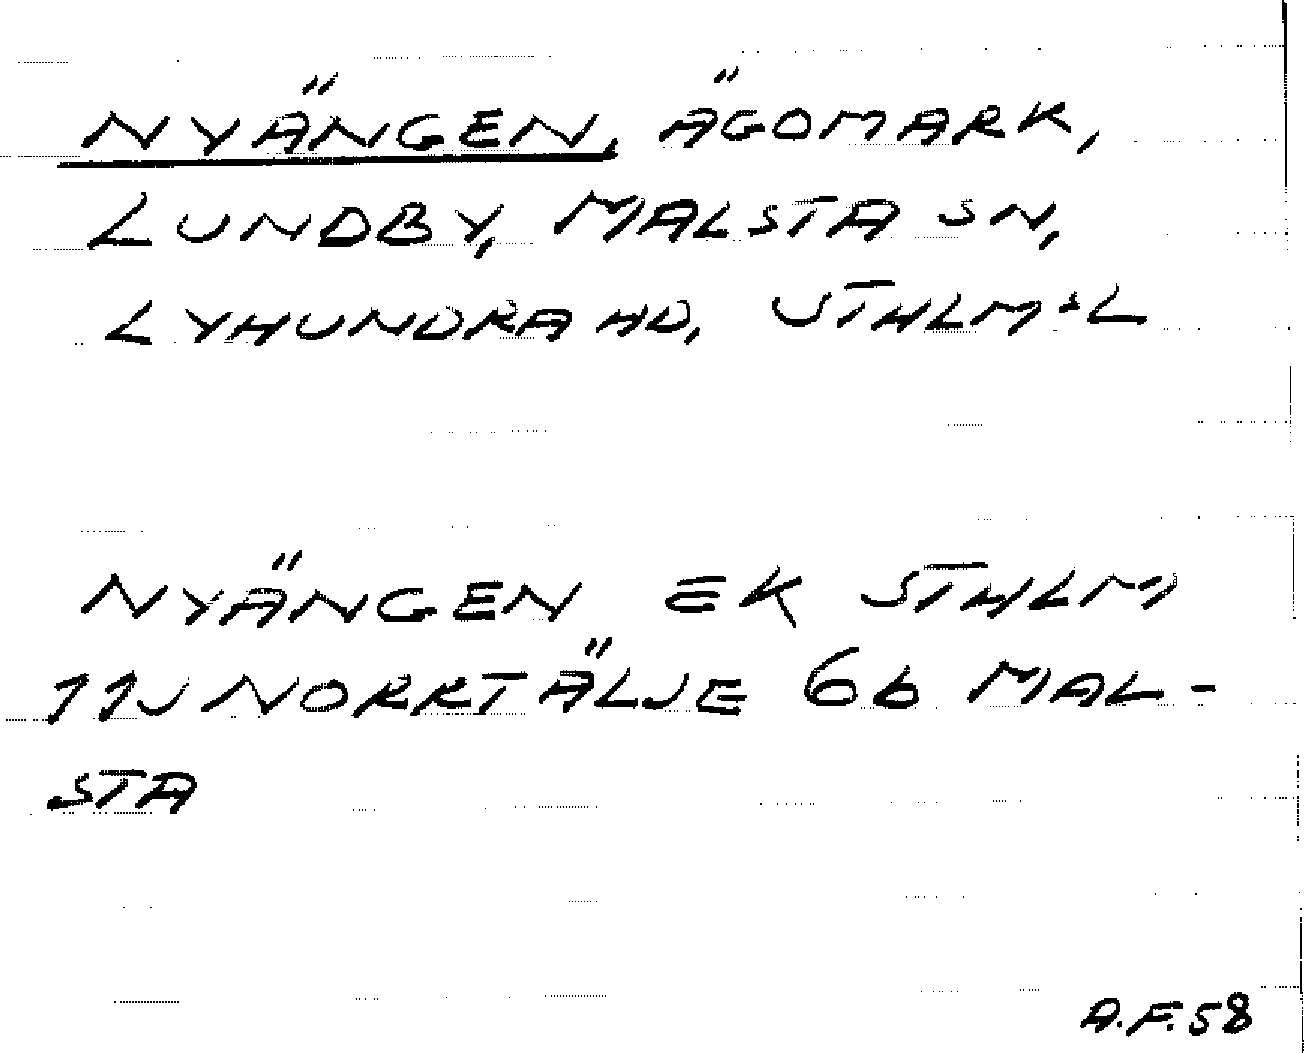 NYÄNGEN, ÄGOMARK,
LUNDBY, MALSTA SN,
LYHUNDRA HD, STHLM:S L
NYÄNGEN EK STHLM
11J NORRTÄLJE 6b MAL-
STA
A.F.58